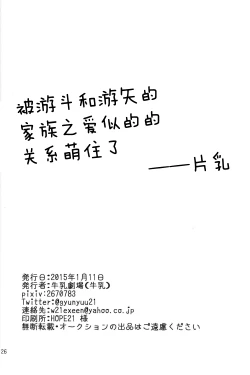 被游斗和游矢的
家族之爱似的的
关系萌住了
——片乳
発行日:2015年1月11日
発行者:牛乳劇場(牛乳)
pixiv:2670783
Twitter:@gyunyuu21
連絡先:w21exeen@yahoo.co.jp
印刷所:HOPE21 様
無断転載・オークションの出品はご遠慮ください
26